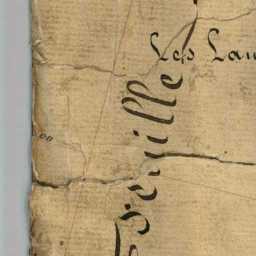 Les Lan
feuille
on